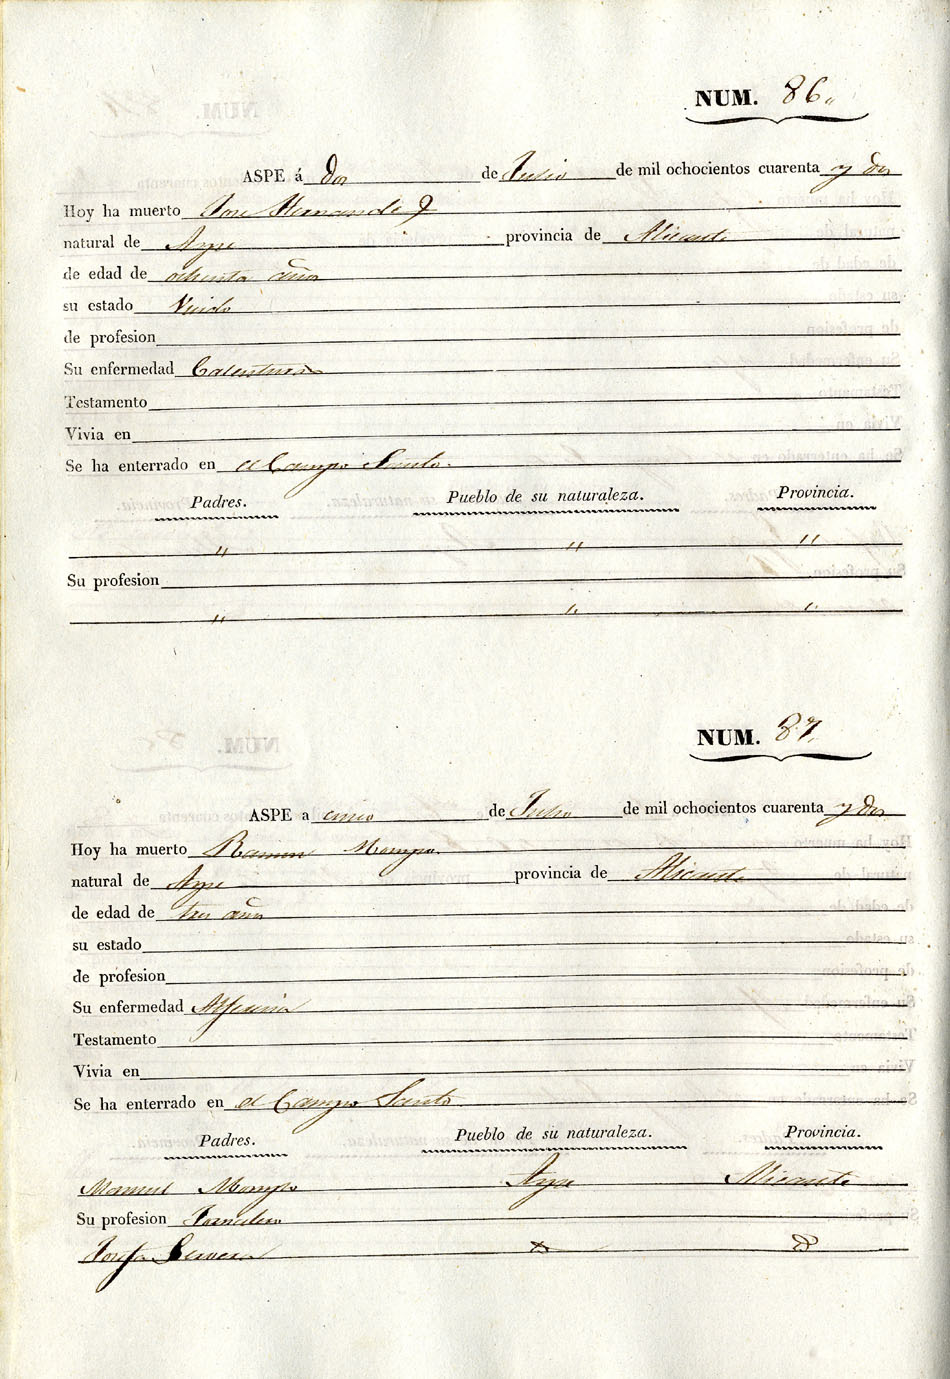 NUM. 86.
ASPE á dos de Julio de mil ochocientos cuarenta y dos
Hoy ha muerto Jose Hernandez
natural de Aspe provincia de Alicante
de edad de ochenta años
su estado Viudo
de profesion
Su enfermedad Calentura
Testamento
Vivia en
Se ha enterrado en el Campo Santo.
Padres. Pueblo de su naturaleza. Provincia.
" " "
Su profesion
" " "
NUM. 87.
ASPE a cinco de Julio de mil ochocientos cuarenta y dos
Hoy ha muerto Ramon Mompo.
natural de Aspe provincia de Alicante
de edad de tres años
su estado
de profesion
Su enfermedad Alferecia
Testamento
Vivia en
Se ha enterrado en el Campo Santo.
Padres. Pueblo de su naturaleza. Provincia.
Manuel Mompo Aspe Alicante
Su profesion Jornalero
Josefa Cervera